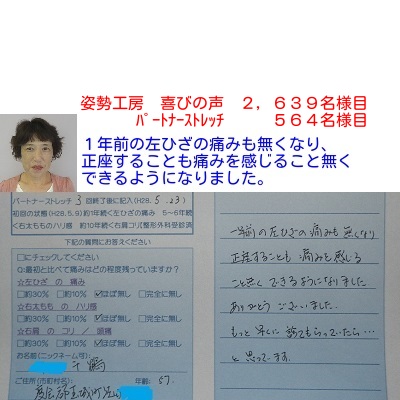 姿勢工房　喜びの声　２，６３９名様目
ﾊﾟｰﾄﾅｰｽﾄﾚｯﾁ　５６４名様目
１年前の左ひざの痛みも無くなり、
正座することも痛みを感じること無く
できるようになりました。
パートナーストレッチ 3 回終了後に記入(H28. 5 .23)
初回の状態(H28.5.9)約1年続く左ひざの痛み　5～6年続
く右太もものハリ感　約10年続く右肩コリ整形外科受診済
下記の質問にお答えください
□にチェックしてください
Q:最初と比べて痛みはどの程度残っていますか?
☆左ひざ の 痛み
□約30% □約10% ☑ほぼ無し □完全に無し
☆右太もも の ハリ感
□約30% □約10% ☑ほぼ無し □完全に無し
☆右肩 の コリ ／ 頭痛
□約30% □約10% ☑ほぼ無し □完全に無し
お名前(ニックネーム可):
千鶴
ご住所(市町村名):　年齢: 57.
度会郡玉城町
一年前の左ひざの痛みも無くなり
正座することも 痛みを感じる
こと無く できるようになりました
ありがとう ございました.
もっと早くに 診てもらっていたら…
と 思ってます.